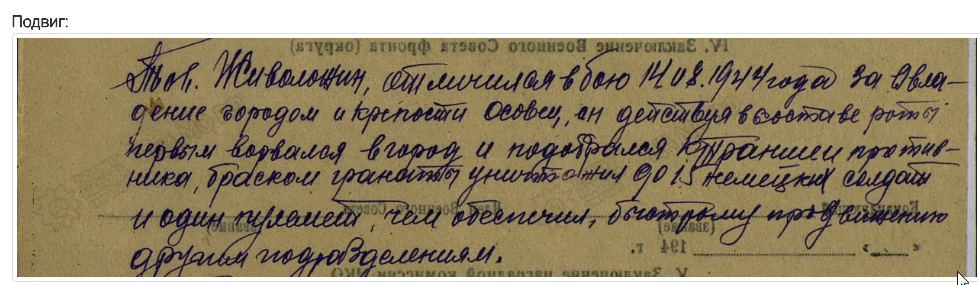 Подвиг:
IV. Заключение Военного Совета фронта (округа)
Тов. Живоложин, отличился в бою 14.08.1944 года за овла-
дение городом и крепости Осовец, он действуя в составе роты
первым ворвался в город и подобрался к траншеи против-
ника, браском гранаты уничтожил до 15 немецких солдат
и один пулемет, чем обеспечил, быстрому продвижению
другим подразделениям.
(звание)
194 г.
V. Заключение наградной комиссии НКО